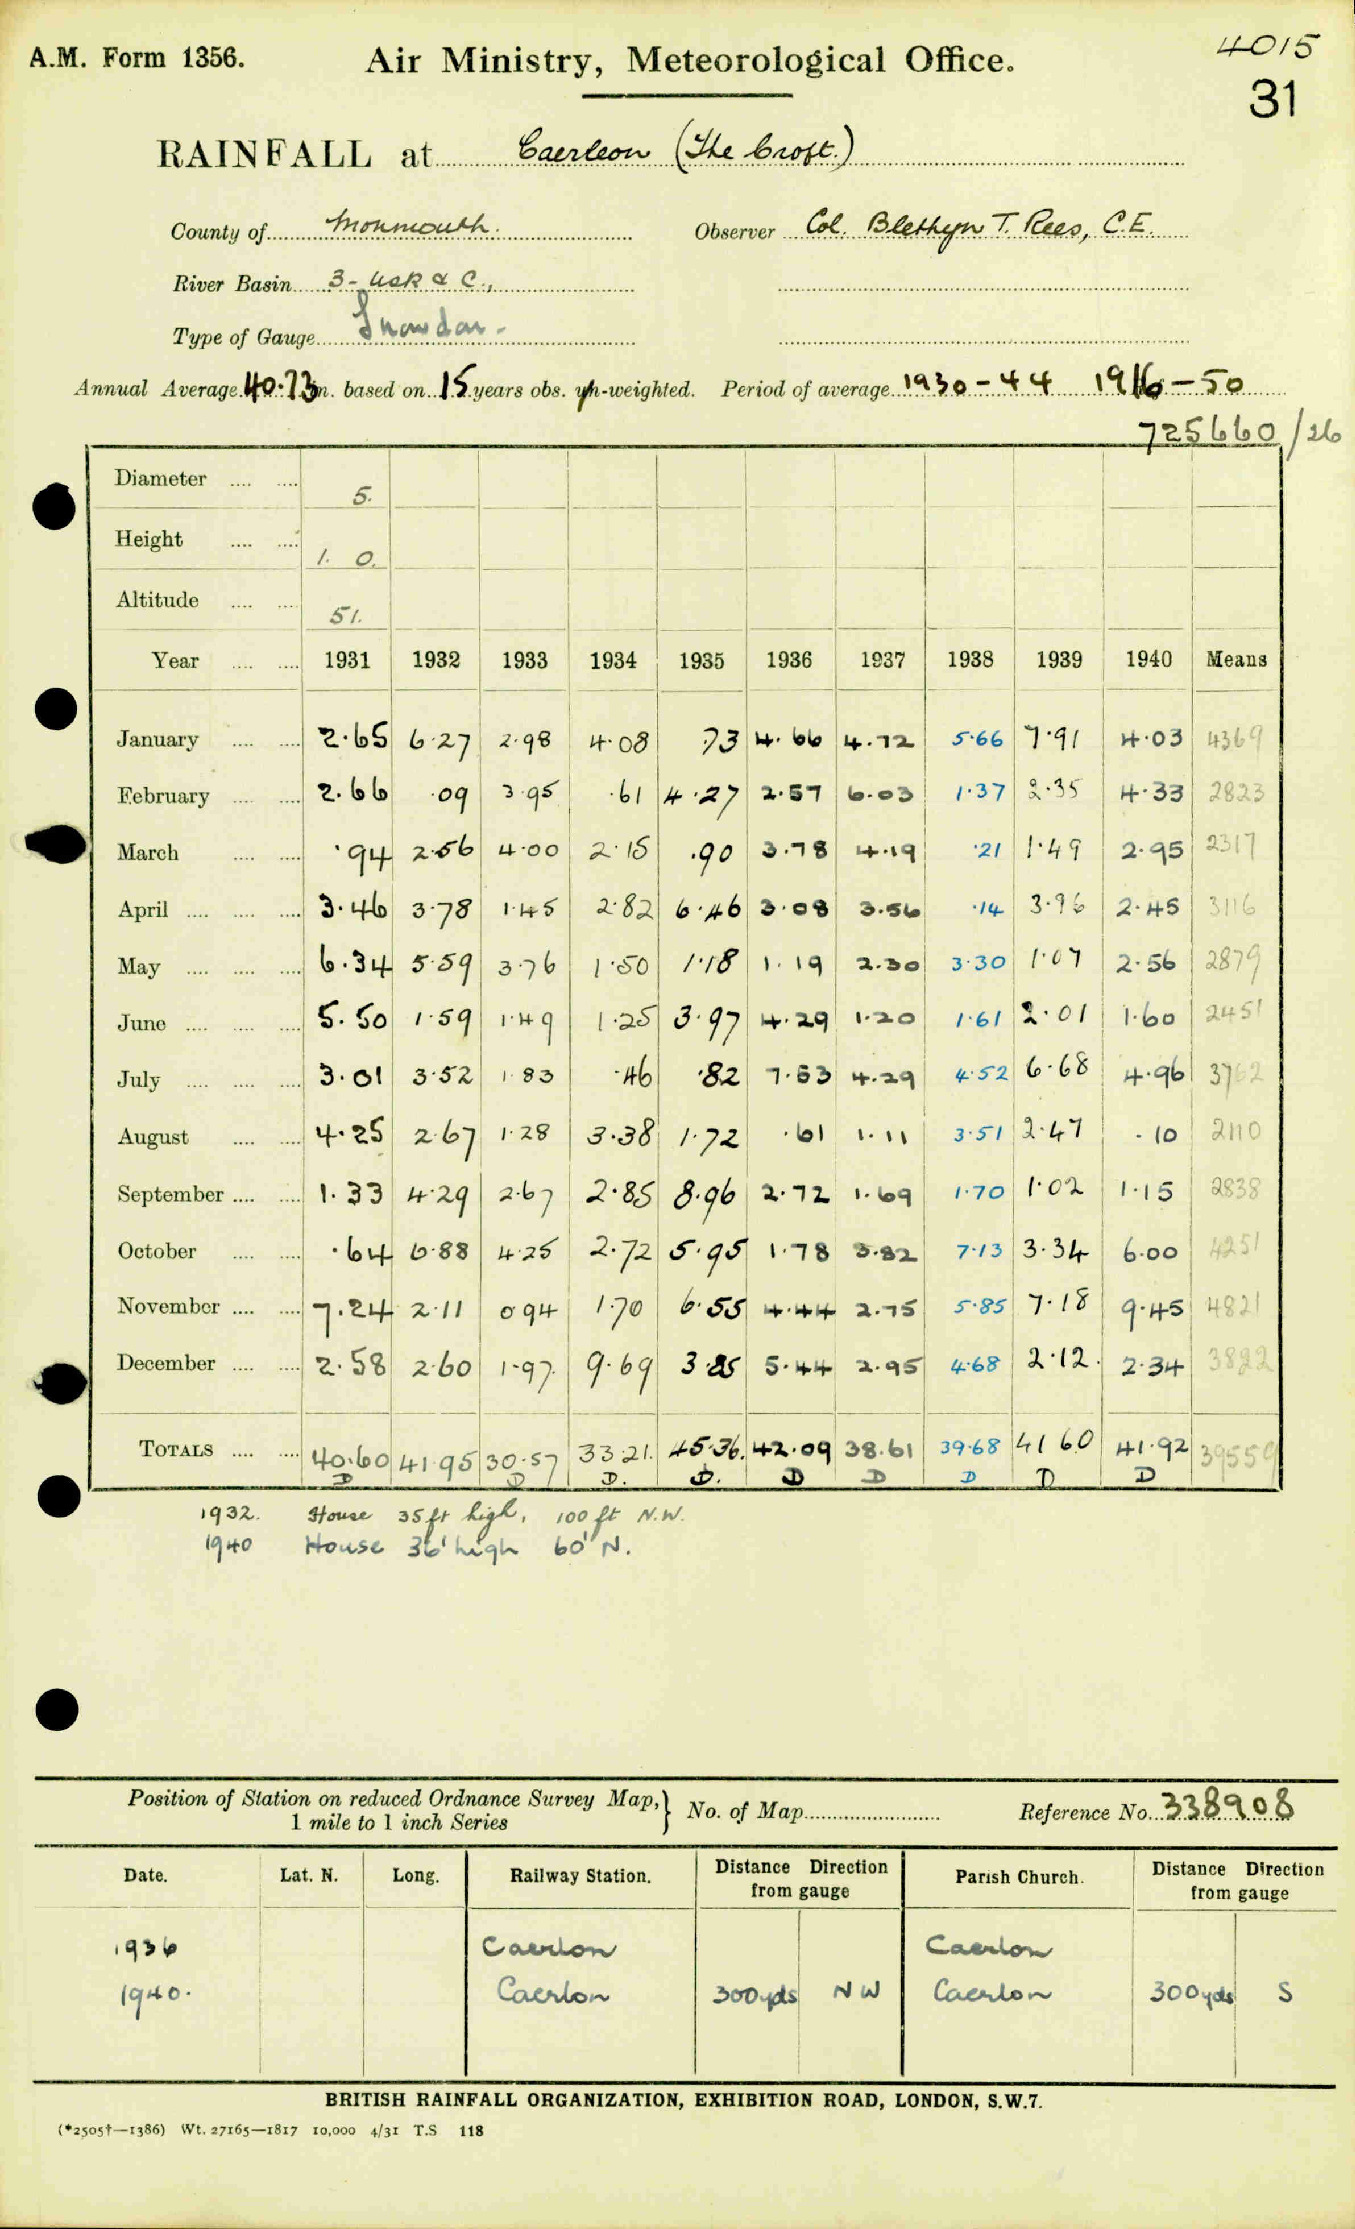 A.M. Form 1356. Air Ministry, Meteorological Office. 4015
31
RAINFALL at Caerleon (The Croft.)
County of Monmouth. Observer Col. Blethyn T. Rees, C.E.
River Basin 3 - Usk & C.,
Type of Gauge Snowdon.
Annual Average 40.73 in. based on 15 years obs. un-weighted. Period of average 1930-44 1916-50
725660/26
Diameter 5.
Height 1. 0.
Altitude 51.
Year 1931 1932 1933 1934 1935 1936 1937 1938 1939 1940 Means
January 2.65 6.27 2.98 4.08 .73 4.66 4.72 5.66 7.91 4.03 4369
February 2.66 .09 3.95 .61 4.27 2.57 6.03 1.37 2.35 4.33 2823
March .94 2.56 4.00 2.15 .90 3.78 4.19 .21 1.49 2.95 2317
April 3.46 3.78 1.45 2.82 6.46 3.08 3.56 .14 3.96 2.45 3116
May 6.34 5.59 3.76 1.50 1.18 1.19 2.30 3.30 1.07 2.56 2879
June 5.50 1.59 1.49 1.25 3.97 4.29 1.20 1.61 2.01 1.60 2451
July 3.01 3.52 1.83 .46 .82 7.53 4.29 4.52 6.68 4.96 3762
August 4.25 2.67 1.28 3.38 1.72 .61 1.11 3.51 2.47 .10 2110
September 1.33 4.29 2.67 2.85 8.96 2.72 1.69 1.70 1.02 1.15 2838
October .64 6.88 4.25 2.72 5.95 1.78 3.82 7.13 3.34 6.00 4251
November 7.24 2.11 0.94 1.70 6.55 4.44 2.75 5.85 7.18 9.45 4821
December 2.58 2.60 1.97 9.69 3.85 5.44 2.95 4.68 2.12. 2.34 3822
TOTALS 40.60 41.95 30.57 33.21. 45.36. 42.09 38.61 39.68 41 60 41.92 39559
D D D. D. D D D D D
1932. House 35ft high, 100 ft N.W.
1940 House 36' high 60' N.
Position of Station on reduced Ordnance Survey Map, } No. of Map Reference No. 338908
1 mile to 1 inch Series
Date. Lat. N. Long. Railway Station. Distance Direction from gauge Parish Church. Distance Direction from gauge
1936 Caerlon Caerlon
1940. Caerlon 300yds NW Caerlon 300yds S
BRITISH RAINFALL ORGANIZATION, EXHIBITION ROAD, LONDON, S.W.7.
(*2505†—1386) Wt. 27165—1817 10,000 4/31 T.S 118